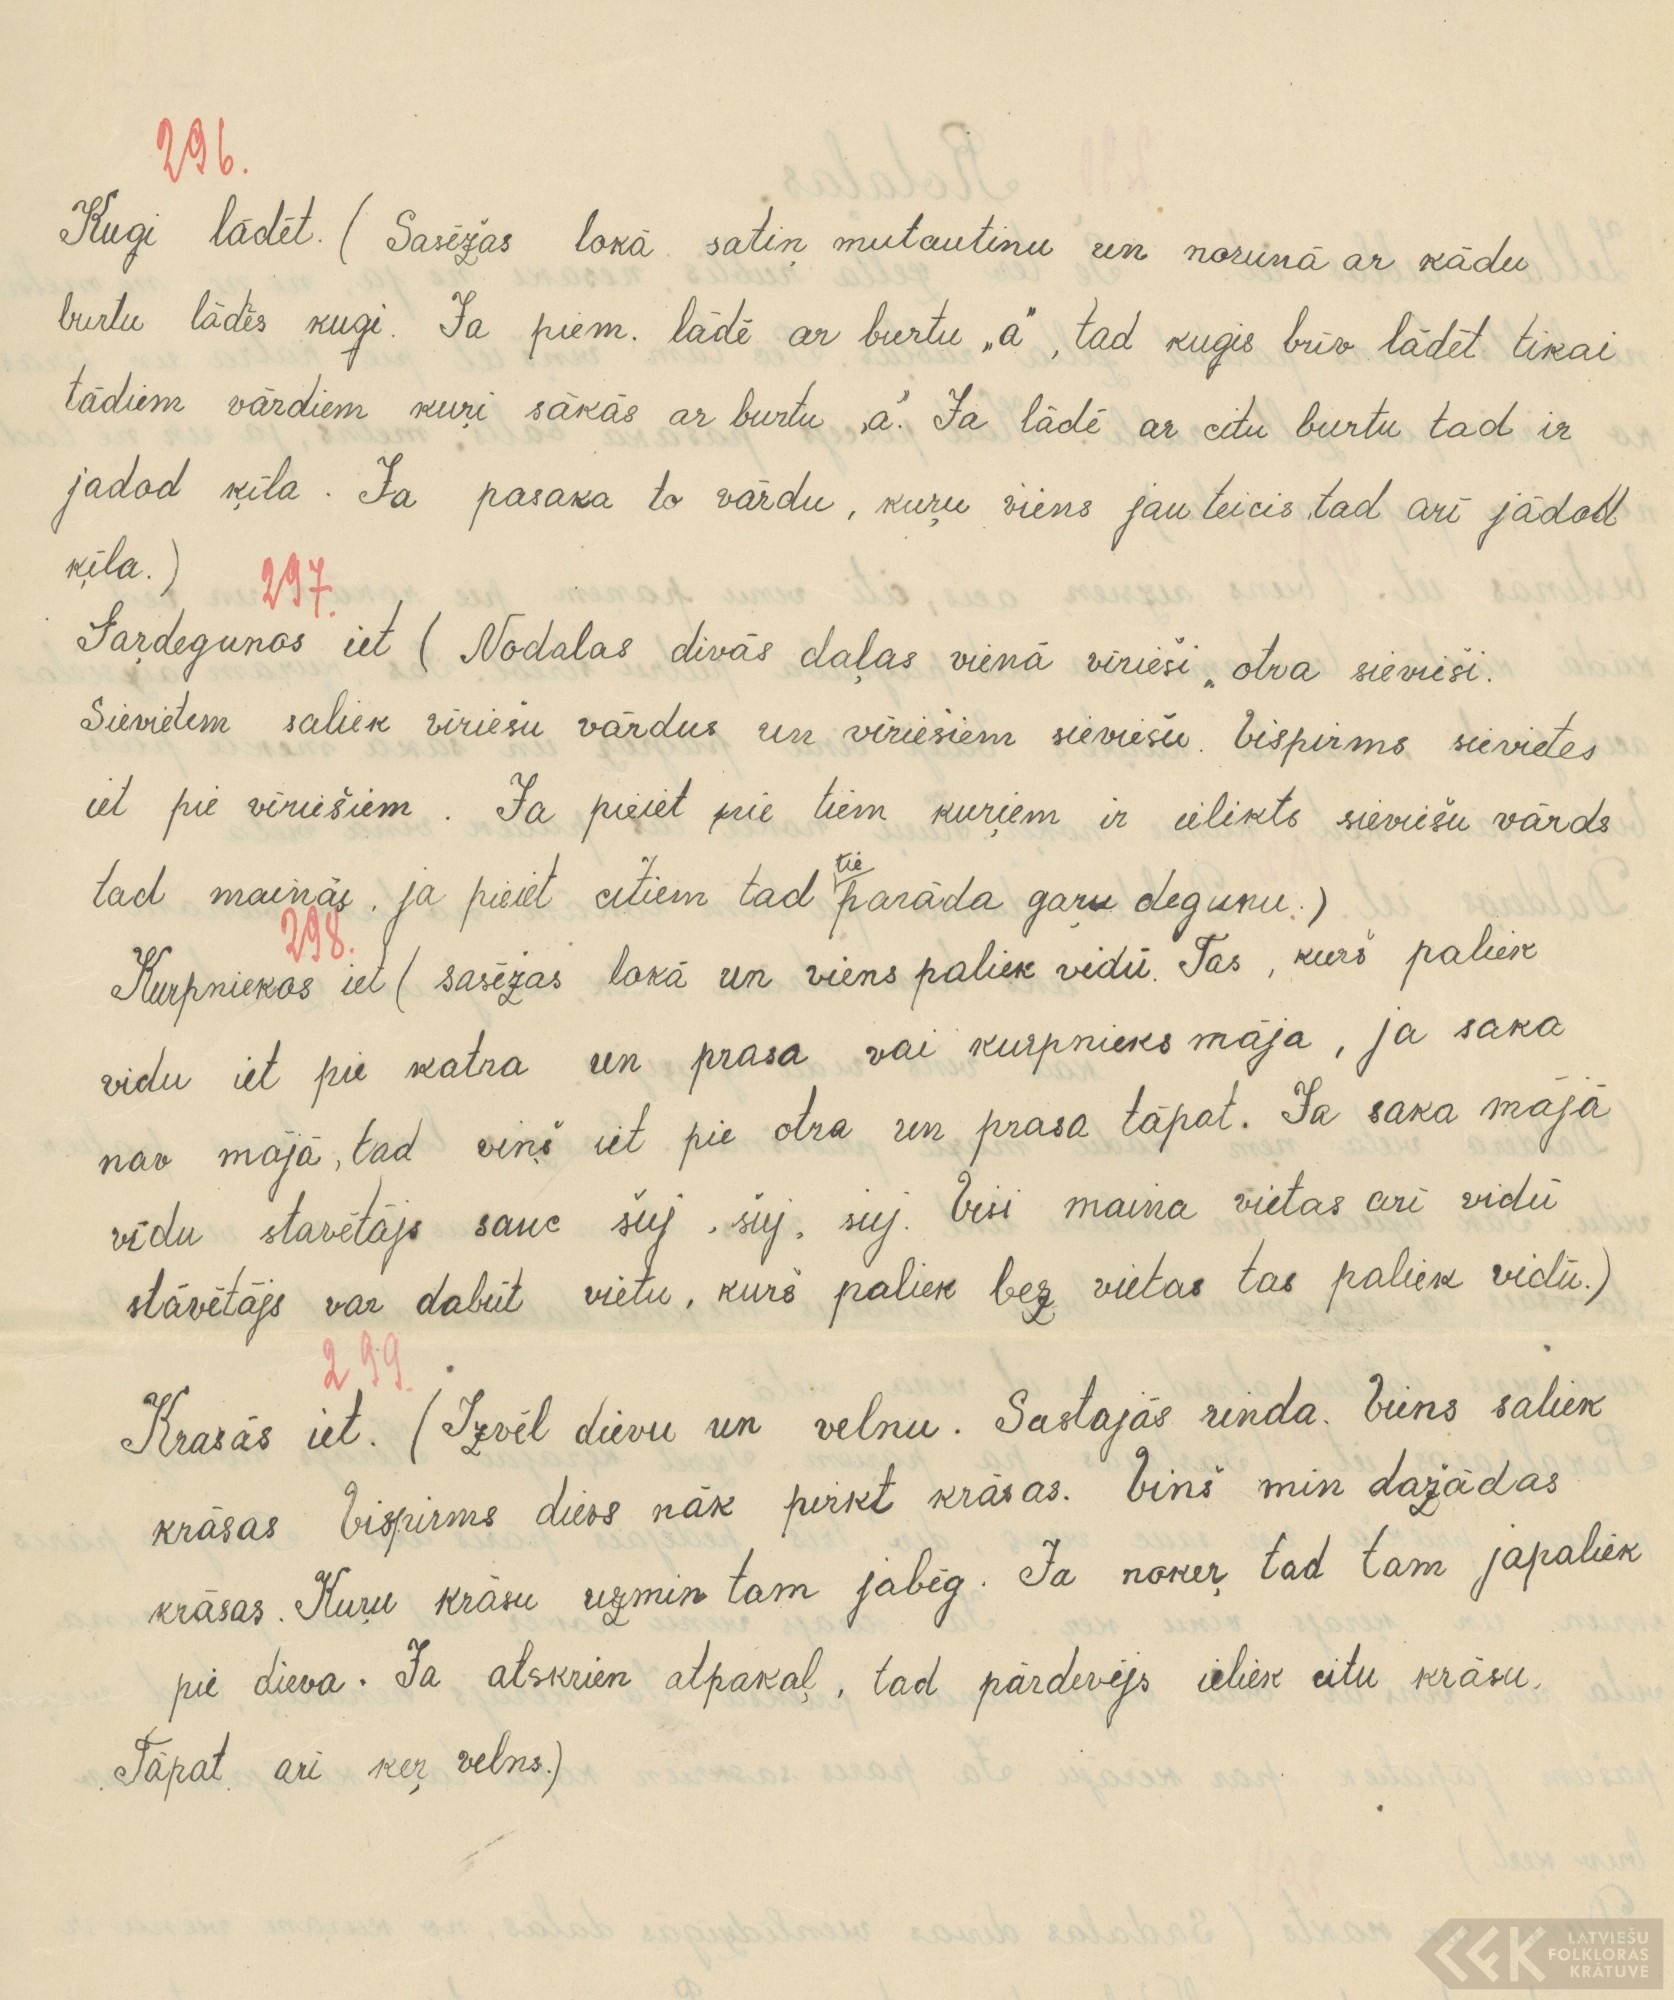 296.
Kugi lādēt. ( Sasēžas lokā satiņ mutautinu un norunā ar kādu
burtu lādēs kugi. Ja piem. lādē ar burtu „a", tad kugis brīv lādēt tikai
tādiem vārdiem kuŗi sākās ar burtu „a". Ja lādē ar citu burtu tad ir
jadod ķīla. Ja pasaka to vārdu, kuŗu viens jau teicis, tad arī jādod
ķīla.)
297.
Gaŗdegunos iet ( Nodalas divās daļas vienā vīrieši „ otra sievieši.
Sievietem saliek vīriešu vārdus un vīriešiem sieviešu. Vispirms sievietes
iet pie vīriešiem. Ja pieiet pie tiem kuŗiem ir ielikts sieviešu vārds
tad mainās, ja pieiet citiem tad tie parāda gaŗu degunu.)
298.
Kurpniekos iet ( sasēžas lokā un viens paliek vidū. Tas, kurš paliek
vidu iet pie katra un prasa vai kurpnieks māja, ja saka
nav mājā, tad viņš iet pie otra un prasa tāpat. Ja saka mājā
vidu stavētājs sauc šuj, šuj, suj. Visi maina vietas arī vidū
stāvētājs var dabūt vietu, kurš paliek bez vietas tas paliek vidū.)
299.
Krasās iet. ( Izvēl dievu un velnu. Sastajās rinda. Viens saliek
krāsas Vispirms dievs nāk pirkt krāsas. Vinš min dažādas
krāsas. Kuŗu krāsu uzmin tam jabēg. Ja nokeŗ tad tam japaliek
pie dieva. Ja atskrien atpakaļ, tad pārdevējs ieliek citu krāsu.
Tāpat arī keŗ velns.)
LATVIEŠU
FOLKLORAS
KRĀTUVE